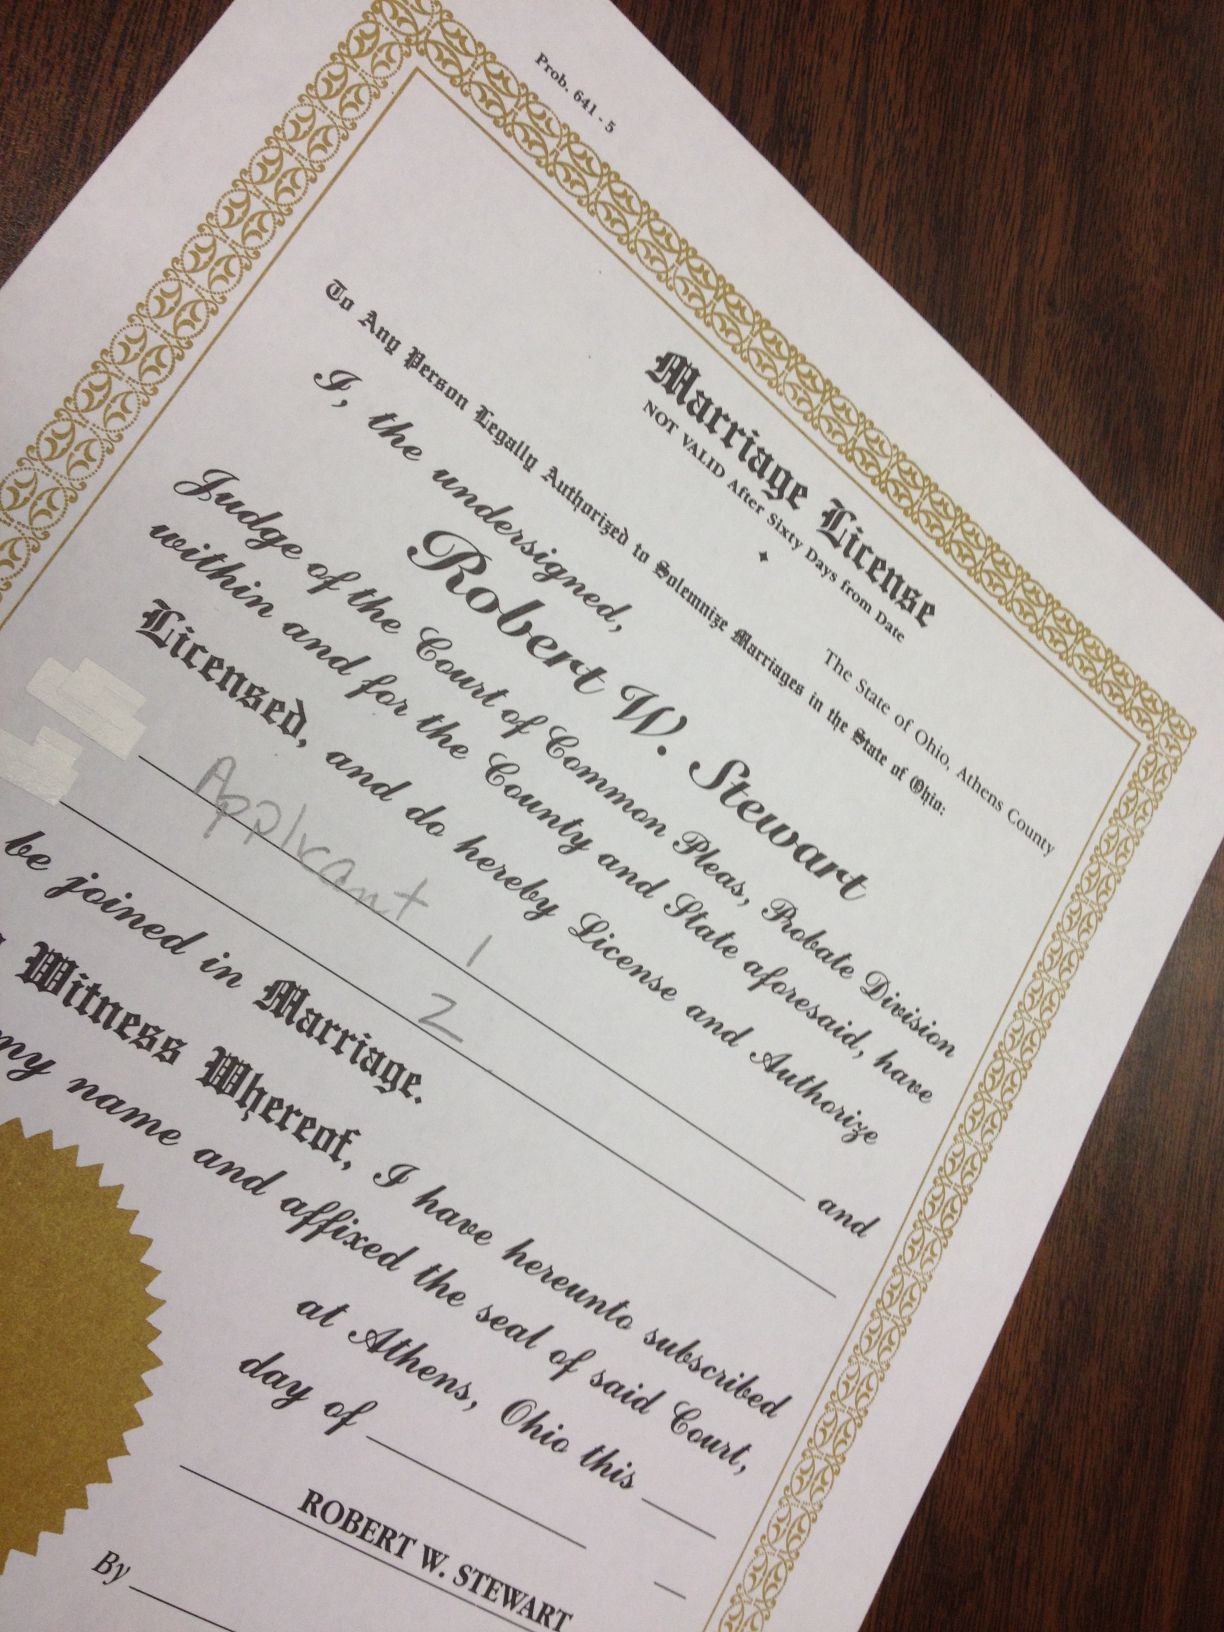 Prob. 641 - 5
Marriage License
NOT VALID After Sixty Days from Date
The State of Ohio, Athens County
To Any Person Legally Authorized to Solemnize Marriages in the State of Ohio:
I, the undersigned,
Robert W. Stewart
Judge of the Court of Common Pleas, Probate Division
within and for the County and State aforesaid, have
Licensed, and do hereby License and Authorize
Applicant 1 and
2
be joined in Marriage.
Witness Whereof, I have hereunto subscribed
my name and affixed the seal of said Court,
at Athens, Ohio this
day of
ROBERT W. STEWART
By